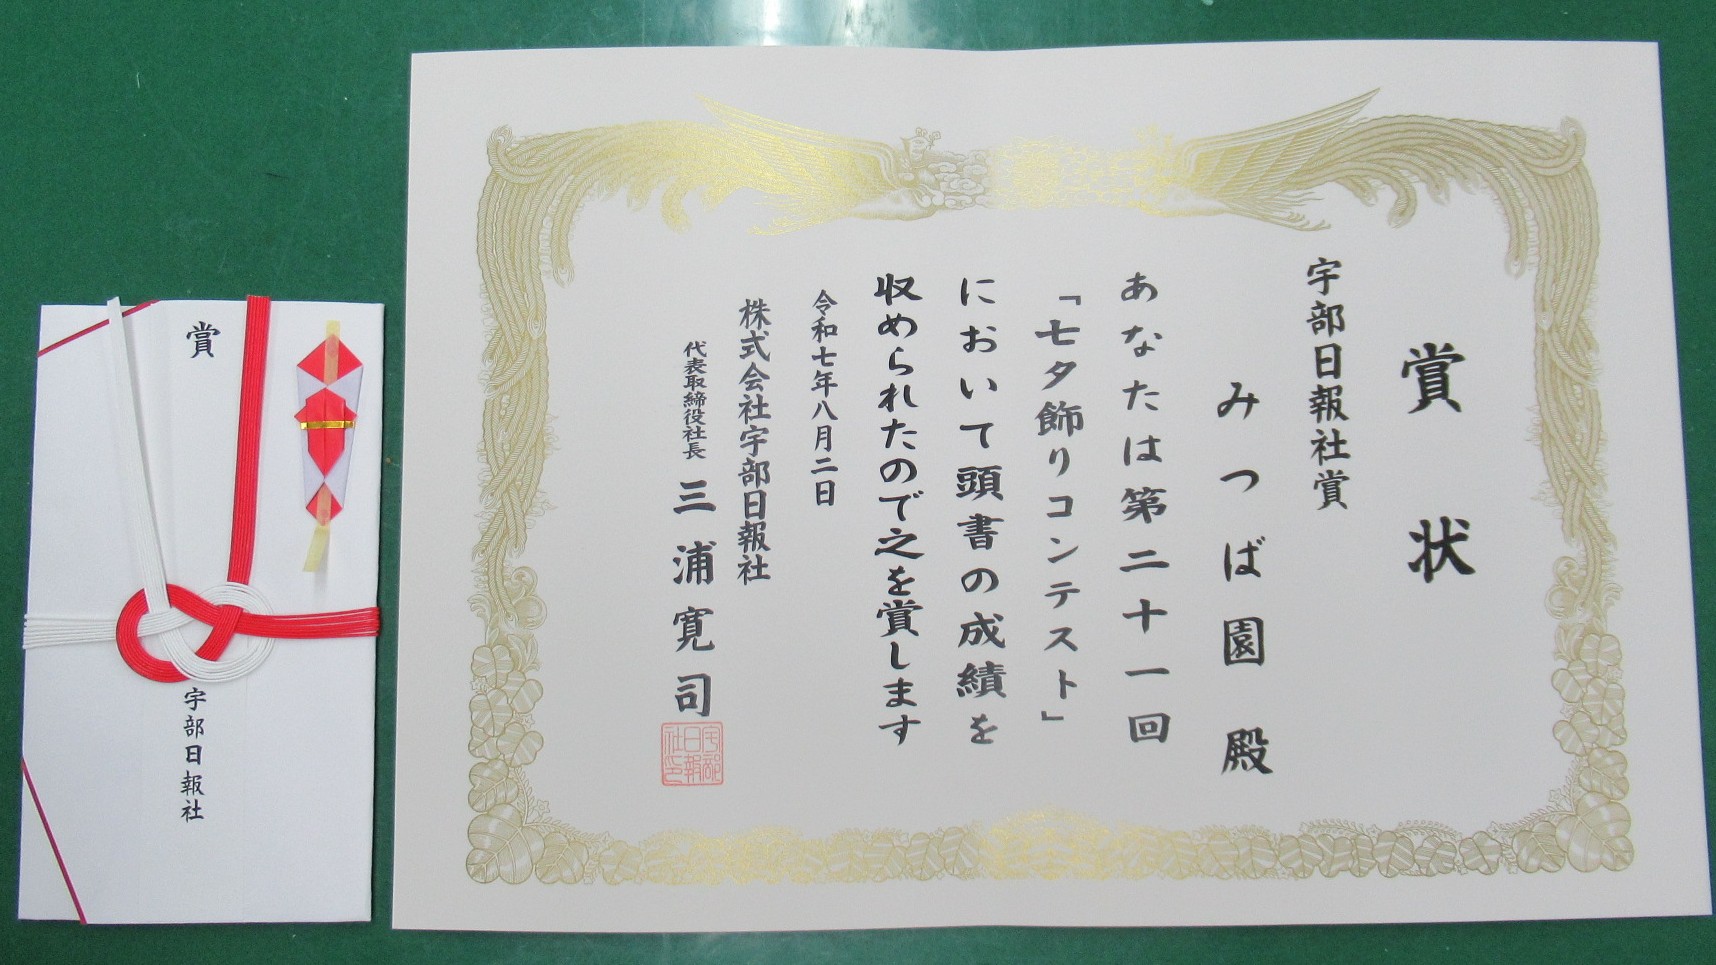 賞状
宇部日報社賞
みつば園 殿
あなたは第二十一回
「七夕飾りコンテスト」
において頭書の成績を
収められたので之を賞します
令和七年八月二日
株式会社宇部日報社
代表取締役社長 三浦寛司
宇部日報社印
賞
宇部日報社